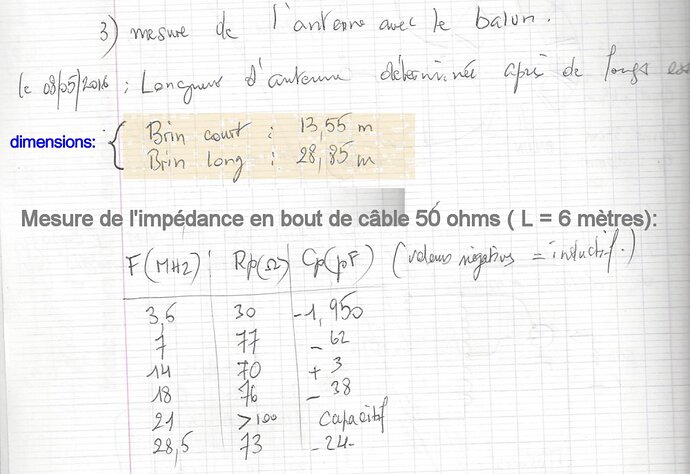 3) mesure de l'antenne avec le balun.
le 08/05/2016 : Longueur d'antenne déterminée après de longs
dimensions: { Brin court : 13,55 m
Brin long : 28,85 m
Mesure de l'impédance en bout de câble 50 ohms ( L = 6 mètres):
F(MHz) Rp(Ω) Cp(pF) (valeurs négatives = inductif.)
3,5 30 -1,950
7 77 - 62
14 70 + 3
18 76 - 38
21 >100 capacitif
28,5 73 - 24